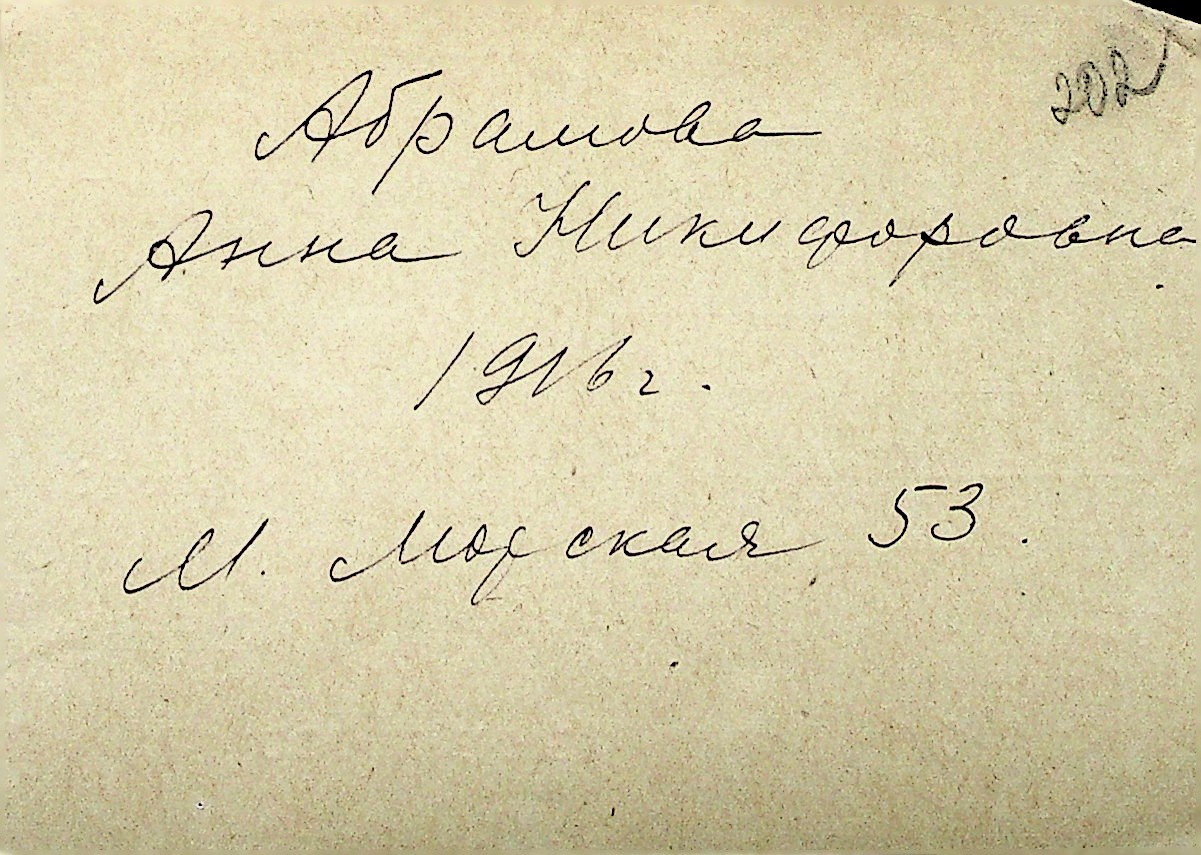 202
Абрамова
Анна Никифоровна
1916 г.
М. Морская 53.